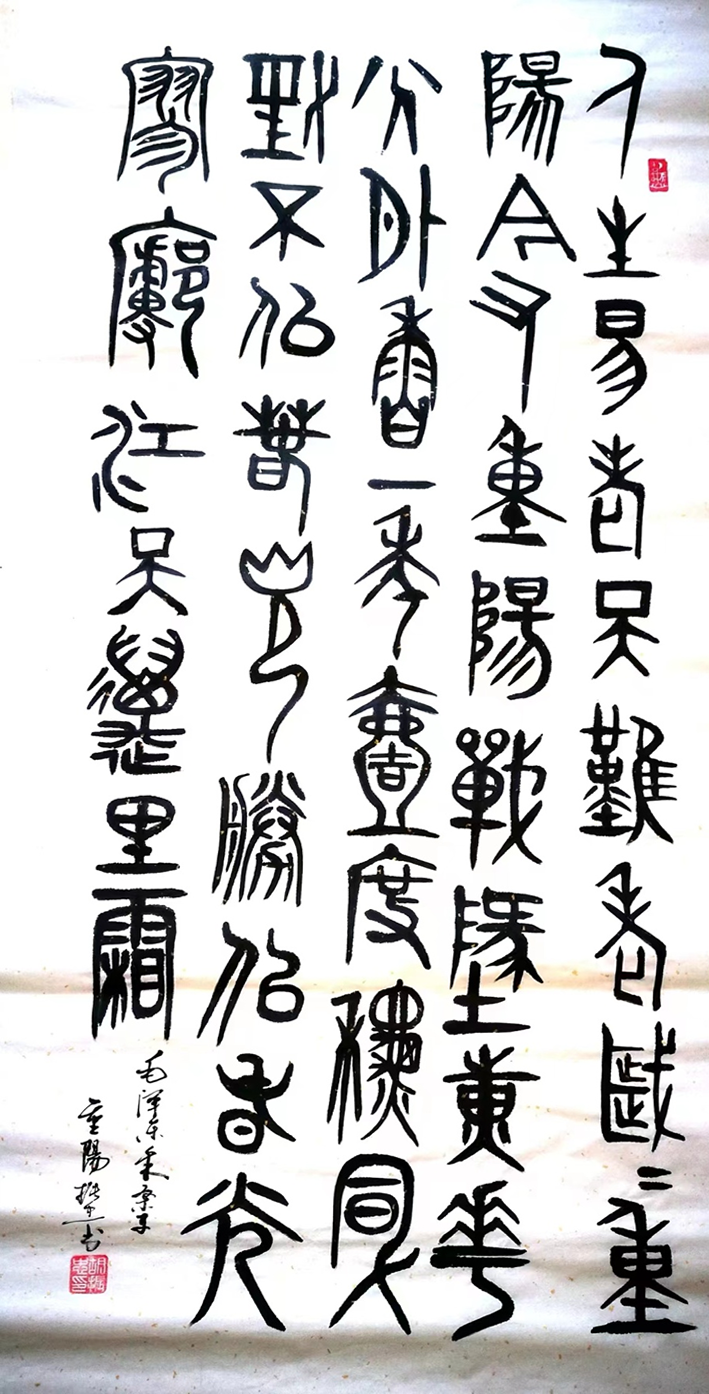 人生易老天難老歲〻重
陽今又重陽戰地黄華
分外香一年壹度秋風
勁不似春光勝似春光
寥廓江天萬里霜
毛澤东采桑子
重陽 书